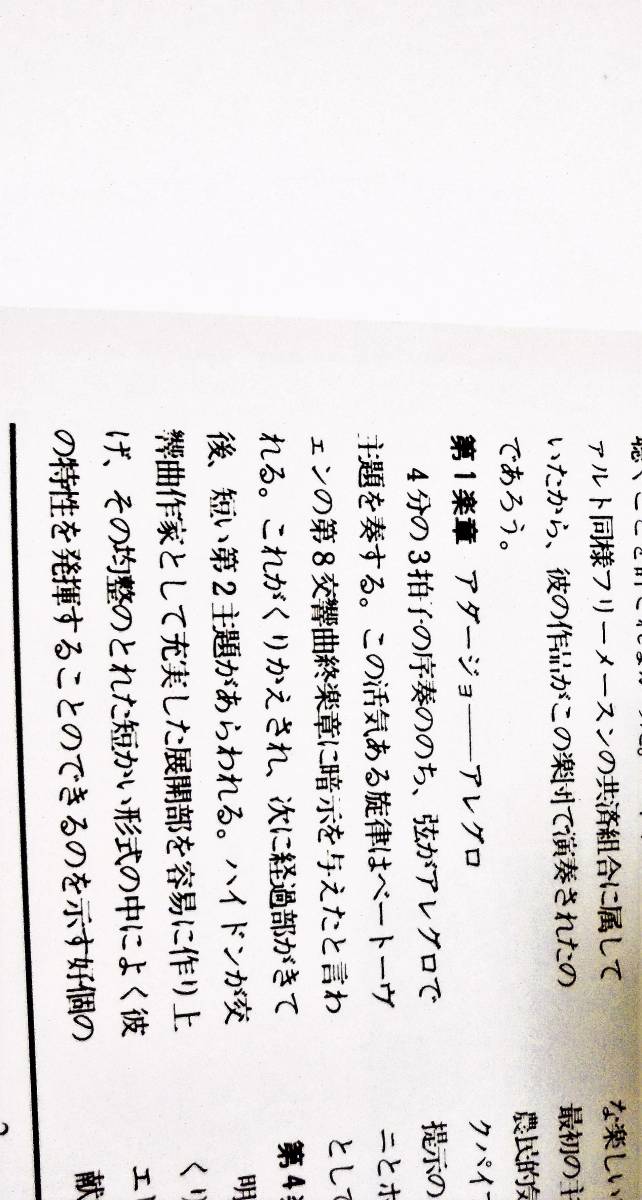 ァルト同様フリーメースンの共済組合に属して
いたから、彼の作品がこの楽団で演奏されたの
であろう。
第1楽章 アダージョ――アレグロ
4分の3拍子の序奏ののち、弦がアレグロで
主題を奏する。この活気ある旋律はベートーヴ
ェンの第8交響曲終楽章に暗示を与えたと言わ
れる。これがくりかえされ、次に経過部がきて
後、短い第2主題があらわれる。ハイドンが交
響曲作家として充実した展開部を容易に作り上
げ、その均整のとれた短かい形式の中によく彼
の特性を発揮することのできるのを示す好個の
な楽しい
最初の主
農民的
クパイ
提示の
ニとホ
として
第4
明
くり
エ
献